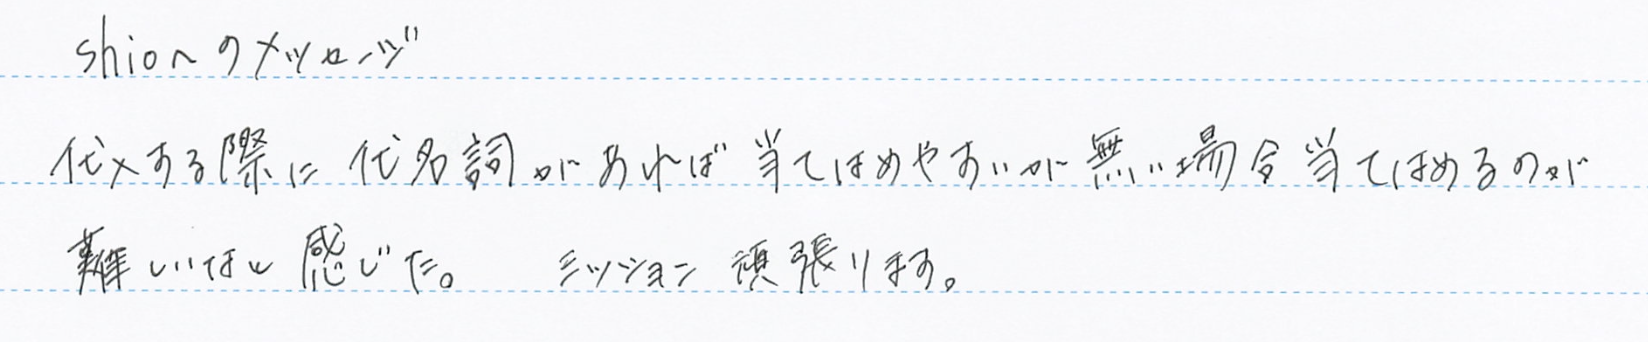 shioへのメッセージ
代入する際に代名詞があれば当てはめやすいが無い場合当てはめるのが
難しいなと感じた。 ミッション頑張ります。